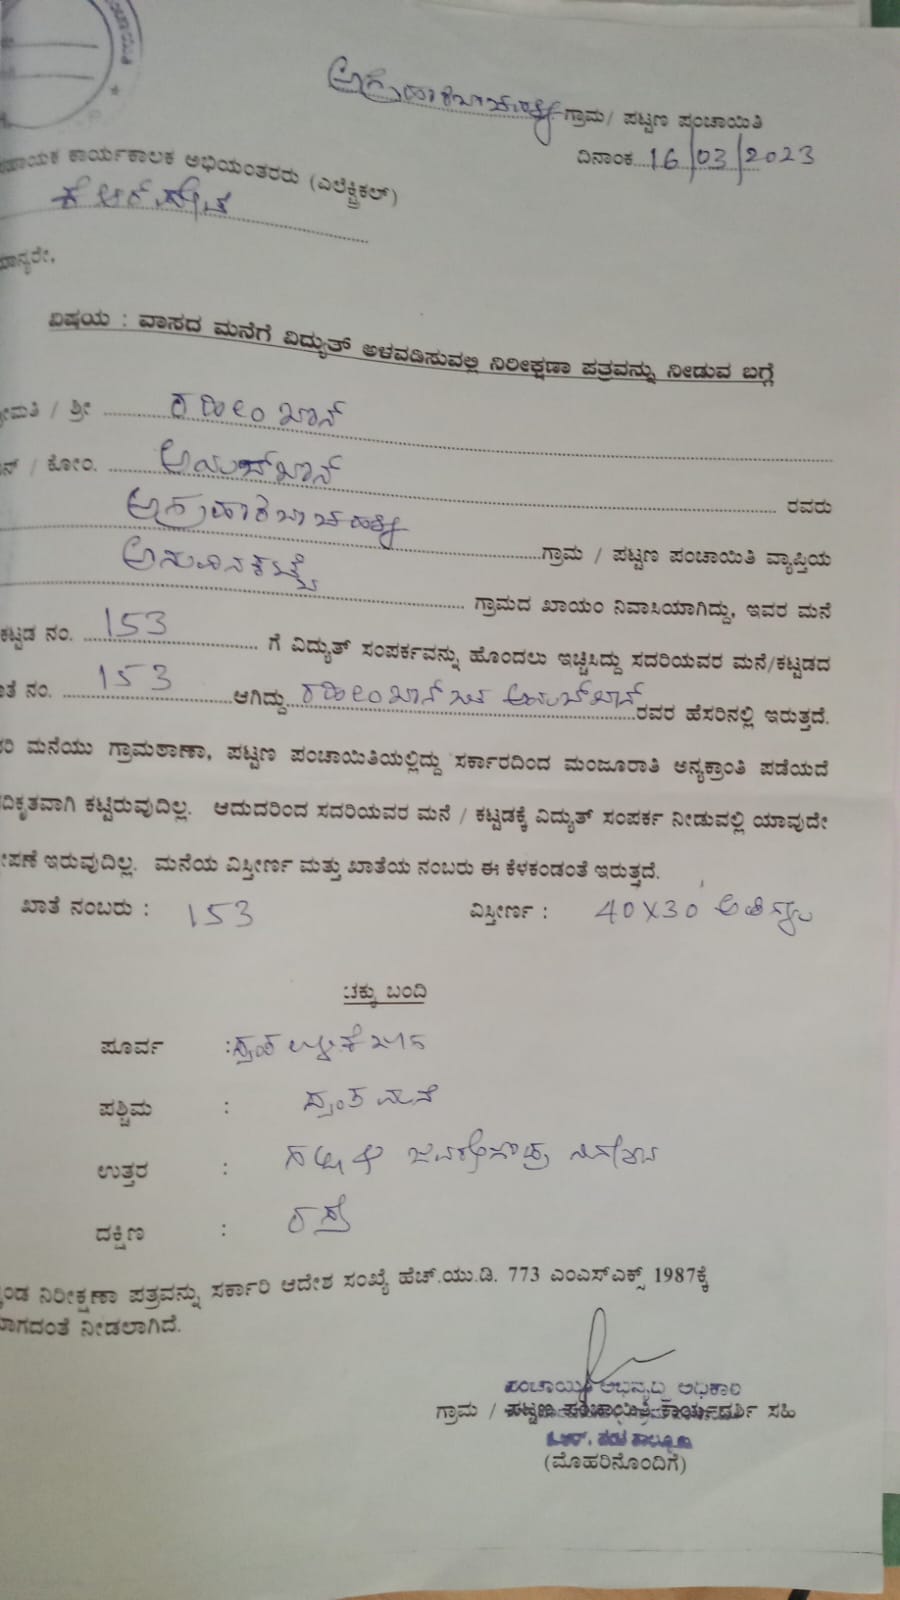 ಅಗ್ರಹಾರಬಾಚಹಳ್ಳಿ ಗ್ರಾಮ/ ಪಟ್ಟಣ ಪಂಚಾಯಿತಿ
ದಿನಾಂಕ 16/03/2023
ಸಹಾಯಕ ಕಾರ್ಯಕಾಲಕ ಅಭಿಯಂತರರು (ಎಲೆಕ್ಟ್ರಿಕಲ್)
ಕೆ ಆರ್ ಪೇಟೆ
ಮಾನ್ಯರೇ,
ವಿಷಯ : ವಾಸದ ಮನೆಗೆ ವಿದ್ಯುತ್ ಅಳವಡಿಸುವಲ್ಲಿ ನಿರೀಕ್ಷಣಾ ಪತ್ರವನ್ನು ನೀಡುವ ಬಗ್ಗೆ
ಶ್ರೀಮತಿ / ಶ್ರೀ ರಹೀಂ ಖಾನ್
ಬಿನ್ / ಕೋಂ. ಅಯುಬ್ ಖಾನ್ ರವರು
ಅಗ್ರಹಾರಬಾಚಹಳ್ಳಿ ಗ್ರಾಮ / ಪಟ್ಟಣ ಪಂಚಾಯಿತಿ ವ್ಯಾಪ್ತಿಯ
ಅನುವಿನಕಟ್ಟೆ ಗ್ರಾಮದ ಖಾಯಂ ನಿವಾಸಿಯಾಗಿದ್ದು, ಇವರ ಮನೆ
ಕಟ್ಟಡ ನಂ. 153 ಗೆ ವಿದ್ಯುತ್ ಸಂಪರ್ಕವನ್ನು ಹೊಂದಲು ಇಚ್ಚಿಸಿದ್ದು ಸದರಿಯವರ ಮನೆ/ಕಟ್ಟಡದ
ಖಾತೆ ನಂ. 153 ಆಗಿದ್ದು ರಹೀಂ ಖಾನ್ ಬಿನ್ ಅಯುಬ್ ಖಾನ್ ರವರ ಹೆಸರಿನಲ್ಲಿ ಇರುತ್ತದೆ.
ಸದರಿ ಮನೆಯು ಗ್ರಾಮಠಾಣಾ, ಪಟ್ಟಣ ಪಂಚಾಯಿತಿಯಲ್ಲಿದ್ದು ಸರ್ಕಾರದಿಂದ ಮಂಜೂರಾತಿ ಅನ್ಯಕ್ರಾಂತಿ ಪಡೆಯದೆ
ಅನಧಿಕೃತವಾಗಿ ಕಟ್ಟಿರುವುದಿಲ್ಲ. ಆದುದರಿಂದ ಸದರಿಯವರ ಮನೆ / ಕಟ್ಟಡಕ್ಕೆ ವಿದ್ಯುತ್ ಸಂಪರ್ಕ ನೀಡುವಲ್ಲಿ ಯಾವುದೇ
ಆಕ್ಷೇಪಣೆ ಇರುವುದಿಲ್ಲ. ಮನೆಯ ವಿಸ್ತೀರ್ಣ ಮತ್ತು ಖಾತೆಯ ನಂಬರು ಈ ಕೆಳಕಂಡಂತೆ ಇರುತ್ತದೆ.
ಖಾತೆ ನಂಬರು : 153 ವಿಸ್ತೀರ್ಣ : 40X30 ಅಡಿಗಳು
ಚಕ್ಕು ಬಂದಿ
ಪೂರ್ವ : ಸ್ವಂತ
ಪಶ್ಚಿಮ : ಸ್ವಂತ ಮನೆ
ಉತ್ತರ : ಗಲ್ಲಿ &
ದಕ್ಷಿಣ : ರಸ್ತೆ
ನಿರೀಕ್ಷಣಾ ಪತ್ರವನ್ನು ಸರ್ಕಾರಿ ಆದೇಶ ಸಂಖ್ಯೆ ಹೆಚ್.ಯು.ಡಿ. 773 ಎಂಎಸ್ಎಕ್ಸ್ 1987ಕ್ಕೆ
ನೀಡಲಾಗಿದೆ.
ಪಂಚಾಯಿತಿ ಅಭಿವೃದ್ಧಿ ಅಧಿಕಾರಿ
ಗ್ರಾಮ / ಪಟ್ಟಣ ಪಂಚಾಯಿತಿ ಕಾರ್ಯದರ್ಶಿ ಸಹಿ
ಕೆ.ಆರ್. ಪೇಟೆ ತಾಲ್ಲೂಕು
(ಮೊಹರಿನೊಂದಿಗೆ)